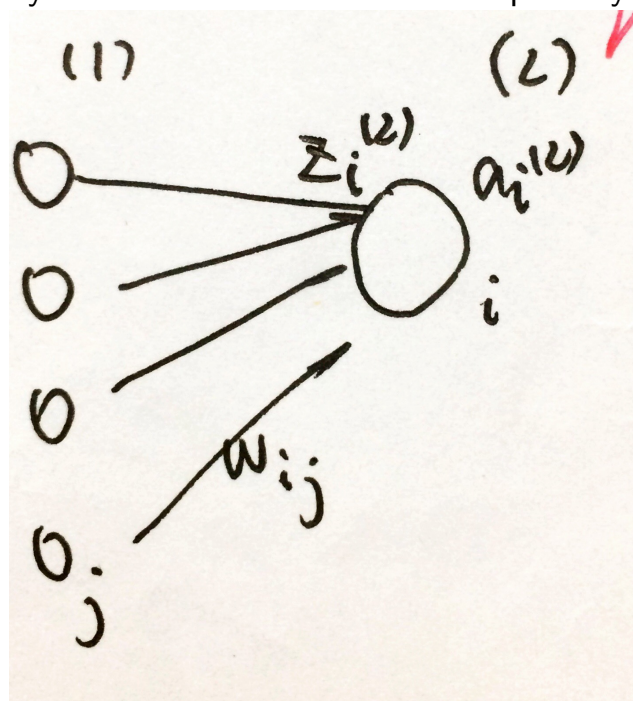 (1) (2)
zi(2) ai(2)
i
wij
j